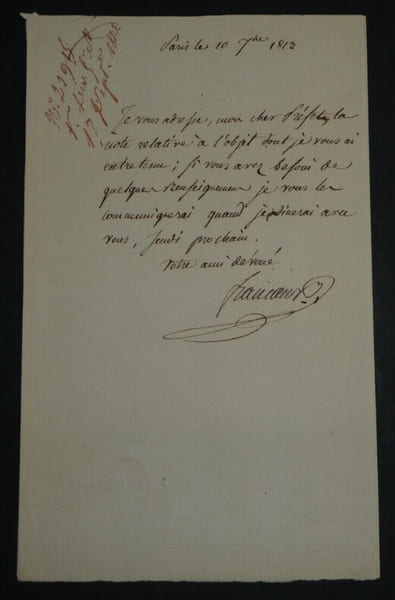 Paris le 10 7bre 1813
Je vous adresse, mon cher Préfet, la
note relative à l'objet dont je vous ai
entretenu; si vous avez besoin de
quelques renseignemens je vous les
communiquerai quand je dinerai avec
vous, Jeudi prochain.
Votre ami dévoué
francœur